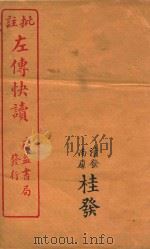 批註
左傳快讀
益書局
發行
桂發